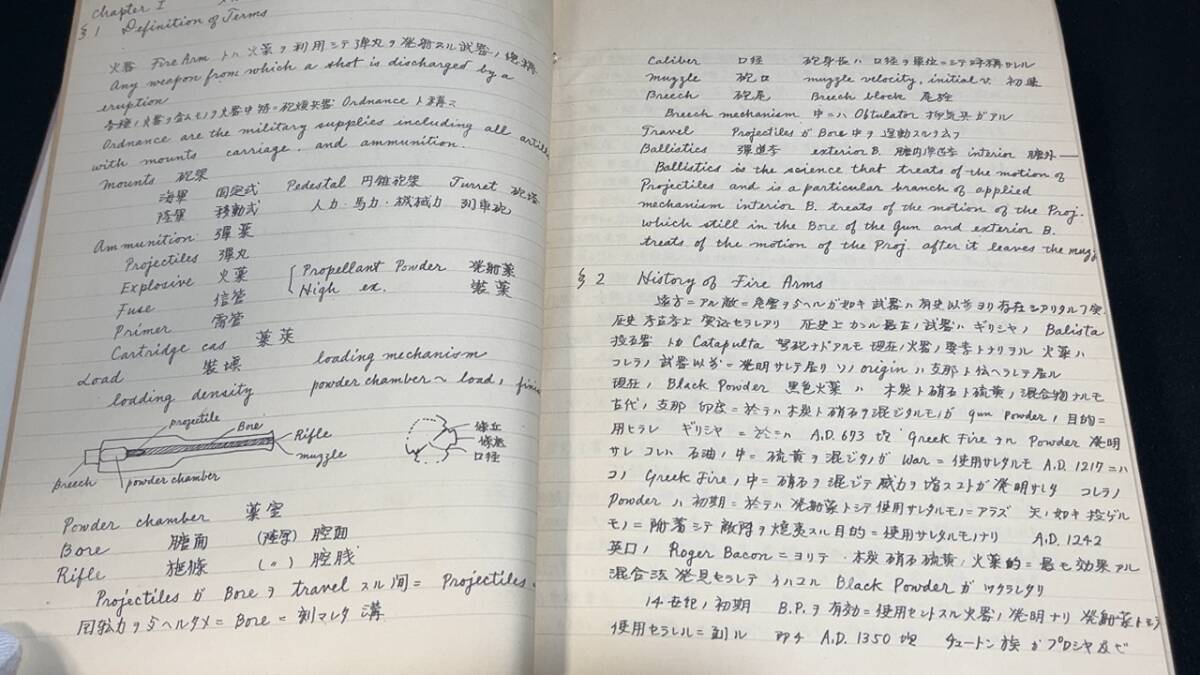 Chapter I
§ 1 Definition of Terms
火器 Fire Arm トハ火薬ヲ利用シテ弾丸ヲ発射スル武器ノ総称
Any weapon from which a shot is discharged by a
eruption
各種ノ火器ヲ含ム Ordnance ト称ス
Ordnance are the military supplies including all artille
with mounts carriage, and ammunition.
mounts 砲架
海軍 固定式 Pedestal 円錐砲架 Turret 砲塔
陸軍 移動式 人力・馬力・機械力 列車砲
Ammunition 彈薬
Projectiles 彈丸
Explosive 火薬 Propellant Powder 発射薬
High ex. 装薬
Fuse 信管
Primer 雷管
Cartridge cas 薬莢
Load 装填 loading mechanism
loading density powder chamber ヘ load
projectile
Bore
Rifle
muzzle
Breech
powder chamber
口径
Powder chamber 薬室
Bore 膅面 (陸軍) 腔面
Rifle 施條 (〃) 腔綫
Projectiles ガ Bore ヲ travel スル间ニ Projectiles
回転力ヲ与ヘルタメニ Bore ニ刻マレタ溝
Caliber 口径 砲身長ハ口径ヲ單位ニシテ呼稱サレル
muzzle 砲口 muzzle velocity, initial v. 初速
Breech 砲尾 Breech block 尾栓
Breech mechanism 中ニハ Obtulator ガアル
Travel Projectiles ガ Bore 中ヲ運動スル
Ballistics 彈道学 exterior B. 膅内弾道学 interior 膅外
Ballistics is the science that treats of the motion of
Projectiles and is a particular branch of applied
mechanism interior B. treats of the motion of the Proj.
which still in the Bore of the Gun and exterior B.
treats of the motion of the Proj. after it leaves the muzz
§ 2 History of Fire Arms
遠方ニアル敵ニ危害ヲ与ヘルガ如キ武器ハ有史以前ヨリ存在シアリタル
歴史考古学上実証セラレアリ 歴史上カヽル最古ノ武器ハギリシヤノ Balista
投石器 トカ Catapulta 弩砲ナドアルモ現在ノ火器ノ要素トナリヲル火薬ハ
コレラノ武器以前ニ発明サレテ居リソノ origin ハ支那ト伝ヘラレテ居ル
現在ノ Black Powder 黒色火薬ハ 木炭ト硝石ト硫黄ノ混合物ナルモ
古代ノ支那 印度ニ於テハ木炭ト硝石ヲ混ジタルモノガ gun powder ノ目的ニ
用ヒラレ ギリシヤニ於テハ A.D. 673 頃 Greek Fire ナル Powder 発明
サレコレハ石油ノ中ニ硫黄ヲ混ジタノガ War ニ使用サレタルモ A.D. 1217 ニハ
コノ Greek Fire ノ中ニ硝石ヲ混ジテ威力ヲ増スコトガ発明サレタ コレラノ
Powder ハ初期ニ於テハ発射薬トシテ使用サレタルモノニアラズ 矢ノ如キ投ゲル
モノニ附着シテ敵陣ヲ焼夷スル目的ニ使用サレタルモノナリ A.D. 1242
英国ノ Roger Bacon ニヨリテ 木炭硝石硫黄ノ火薬的ニ最モ効果アル
混合法発見セラレテイハユル Black Powder ガツクラレタリ
14世紀ノ初期 B.P. ヲ有効ニ使用セントスル火器ノ発明ナリ 発射薬トシテ
使用セラレルニ到ル 即チ A.D. 1350 頃 チュートン族ガプロシヤ及ビ